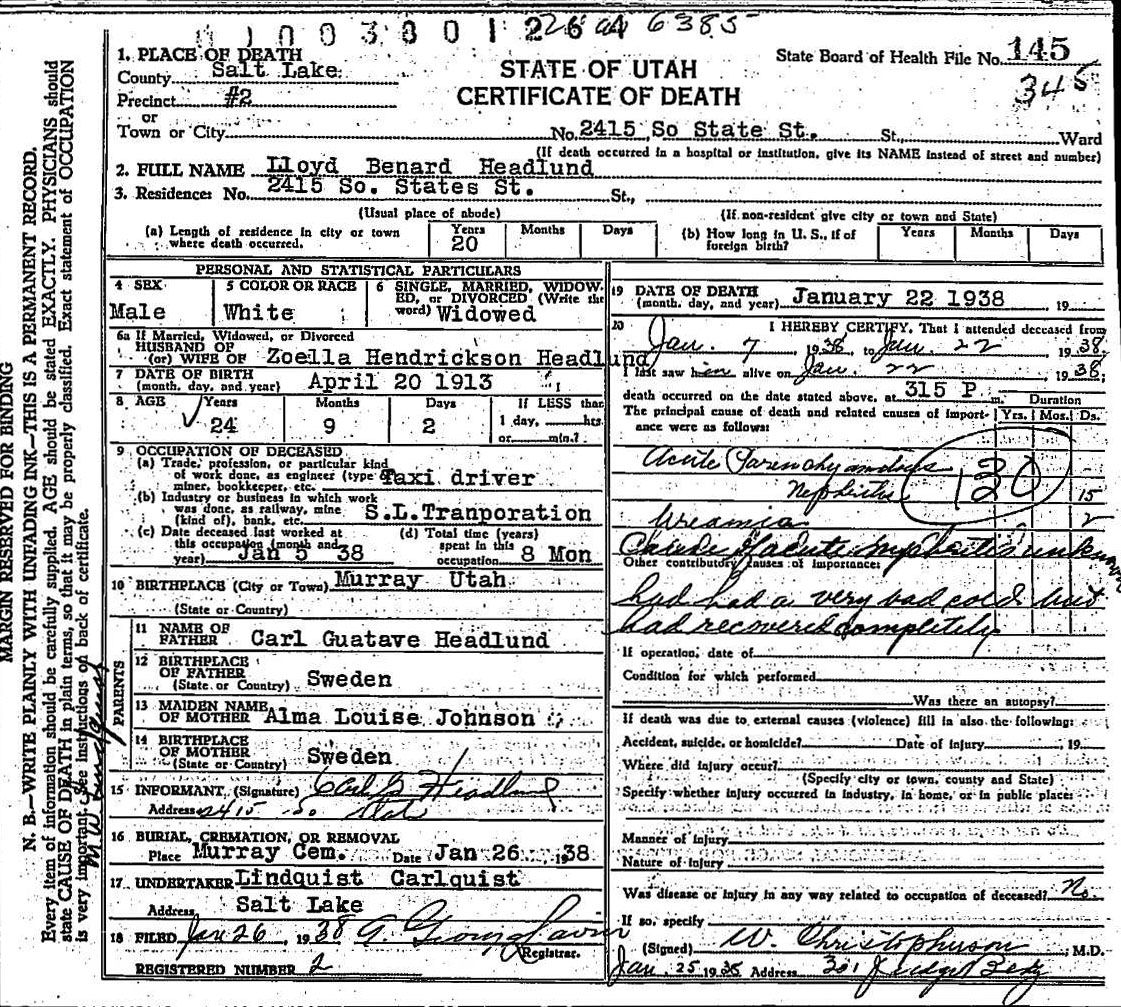 003801 264 6385
State Board of Health File No. 145
345
STATE OF UTAH
CERTIFICATE OF DEATH
1. PLACE OF DEATH
County Salt Lake
Precinct #2
or
Town or City No. 2415 So State St. St., Ward
(If death occurred in a hospital or institution, give its NAME instead of street and number)
2. FULL NAME Lloyd Benard Headlund
3. Residence: No. 2415 So. States St. St.,
(Usual place of abode) (If non-resident give city or town and State)
(a) Length of residence in city or town where death occurred. Years 20 Months Days
(b) How long in U. S., if of foreign birth? Years Months Days
PERSONAL AND STATISTICAL PARTICULARS
4 SEX Male
5 COLOR OR RACE White
6 SINGLE, MARRIED, WIDOWED, or DIVORCED (Write the word) Widowed
6a If Married, Widowed, or Divorced
HUSBAND OF
(or) WIFE OF Zoella Hendrickson Headlund
7 DATE OF BIRTH
(month, day, and year) April 20 1913
8 AGE Years 24 Months 9 Days 2 If LESS than
1 day, hrs
or min.?
9 OCCUPATION OF DECEASED
(a) Trade, profession, or particular kind
of work done, as engineer (type Taxi driver
miner, bookkeeper, etc.
(b) Industry or business in which work
was done, as railway, mine
(kind of), bank, etc. S.L.Tranporation
(c) Date deceased last worked at
this occupation (month and
year) Jan 5 38
(d) Total time (years)
spent in this
occupation 8 Mon
10 BIRTHPLACE (City or Town) Murray Utah
(State or Country)
PARENTS
11 NAME OF
FATHER Carl Guatave Headlund
12 BIRTHPLACE
OF FATHER
(State or Country) Sweden
13 MAIDEN NAME
OF MOTHER Alma Louise Johnson
14 BIRTHPLACE
OF MOTHER
(State or Country) Sweden
15 INFORMANT, (Signature) Carl G Headlund
Address 2415 So State
16 BURIAL, CREMATION, OR REMOVAL
Place Murray Cem. Date Jan 26 1938
17 UNDERTAKER Lindquist Carlquist
Address Salt Lake
18 FILED Jan 26, 1938 A. George
Registrar.
REGISTERED NUMBER 2
19 DATE OF DEATH
(month, day, and year) January 22 1938 19
20 I HEREBY CERTIFY, That I attended deceased from
Jan. 7 1938 to Jan. 22 1938
I last saw him alive on Jan. 22, 1938,
death occurred on the date stated above, at 315 P m.
The principal cause of death and related causes of importance were as follows:
Duration
Yrs. Mos. Ds.
Acute
Nephritis 15
130
Ureamia 2
Cause of acute nephritis unknown
Other contributory causes of importance:
had had a very bad cold but
had recovered completely
If operation, date of
Condition for which performed
Was there an autopsy?
If death was due to external causes (violence) fill in also the following:
Accident, suicide, or homicide? Date of injury , 19
Where did injury occur?
(Specify city or town, county and State)
Specify whether injury occurred in industry, in home, or in public place:
Manner of injury
Nature of injury
Was disease or injury in any way related to occupation of deceased? No.
If so, specify
(Signed) W. Christopherson, M.D.
Jan. 25 1938 Address 301 Judge Bldg
MARGIN RESERVED FOR BINDING
N. B.—WRITE PLAINLY WITH UNFADING INK—THIS IS A PERMANENT RECORD.
Every item of information should be carefully supplied. AGE should be stated EXACTLY. PHYSICIANS should
state CAUSE OF DEATH in plain terms, so that it may be properly classified. Exact statement of OCCUPATION
is very important. See instructions on back of certificate.